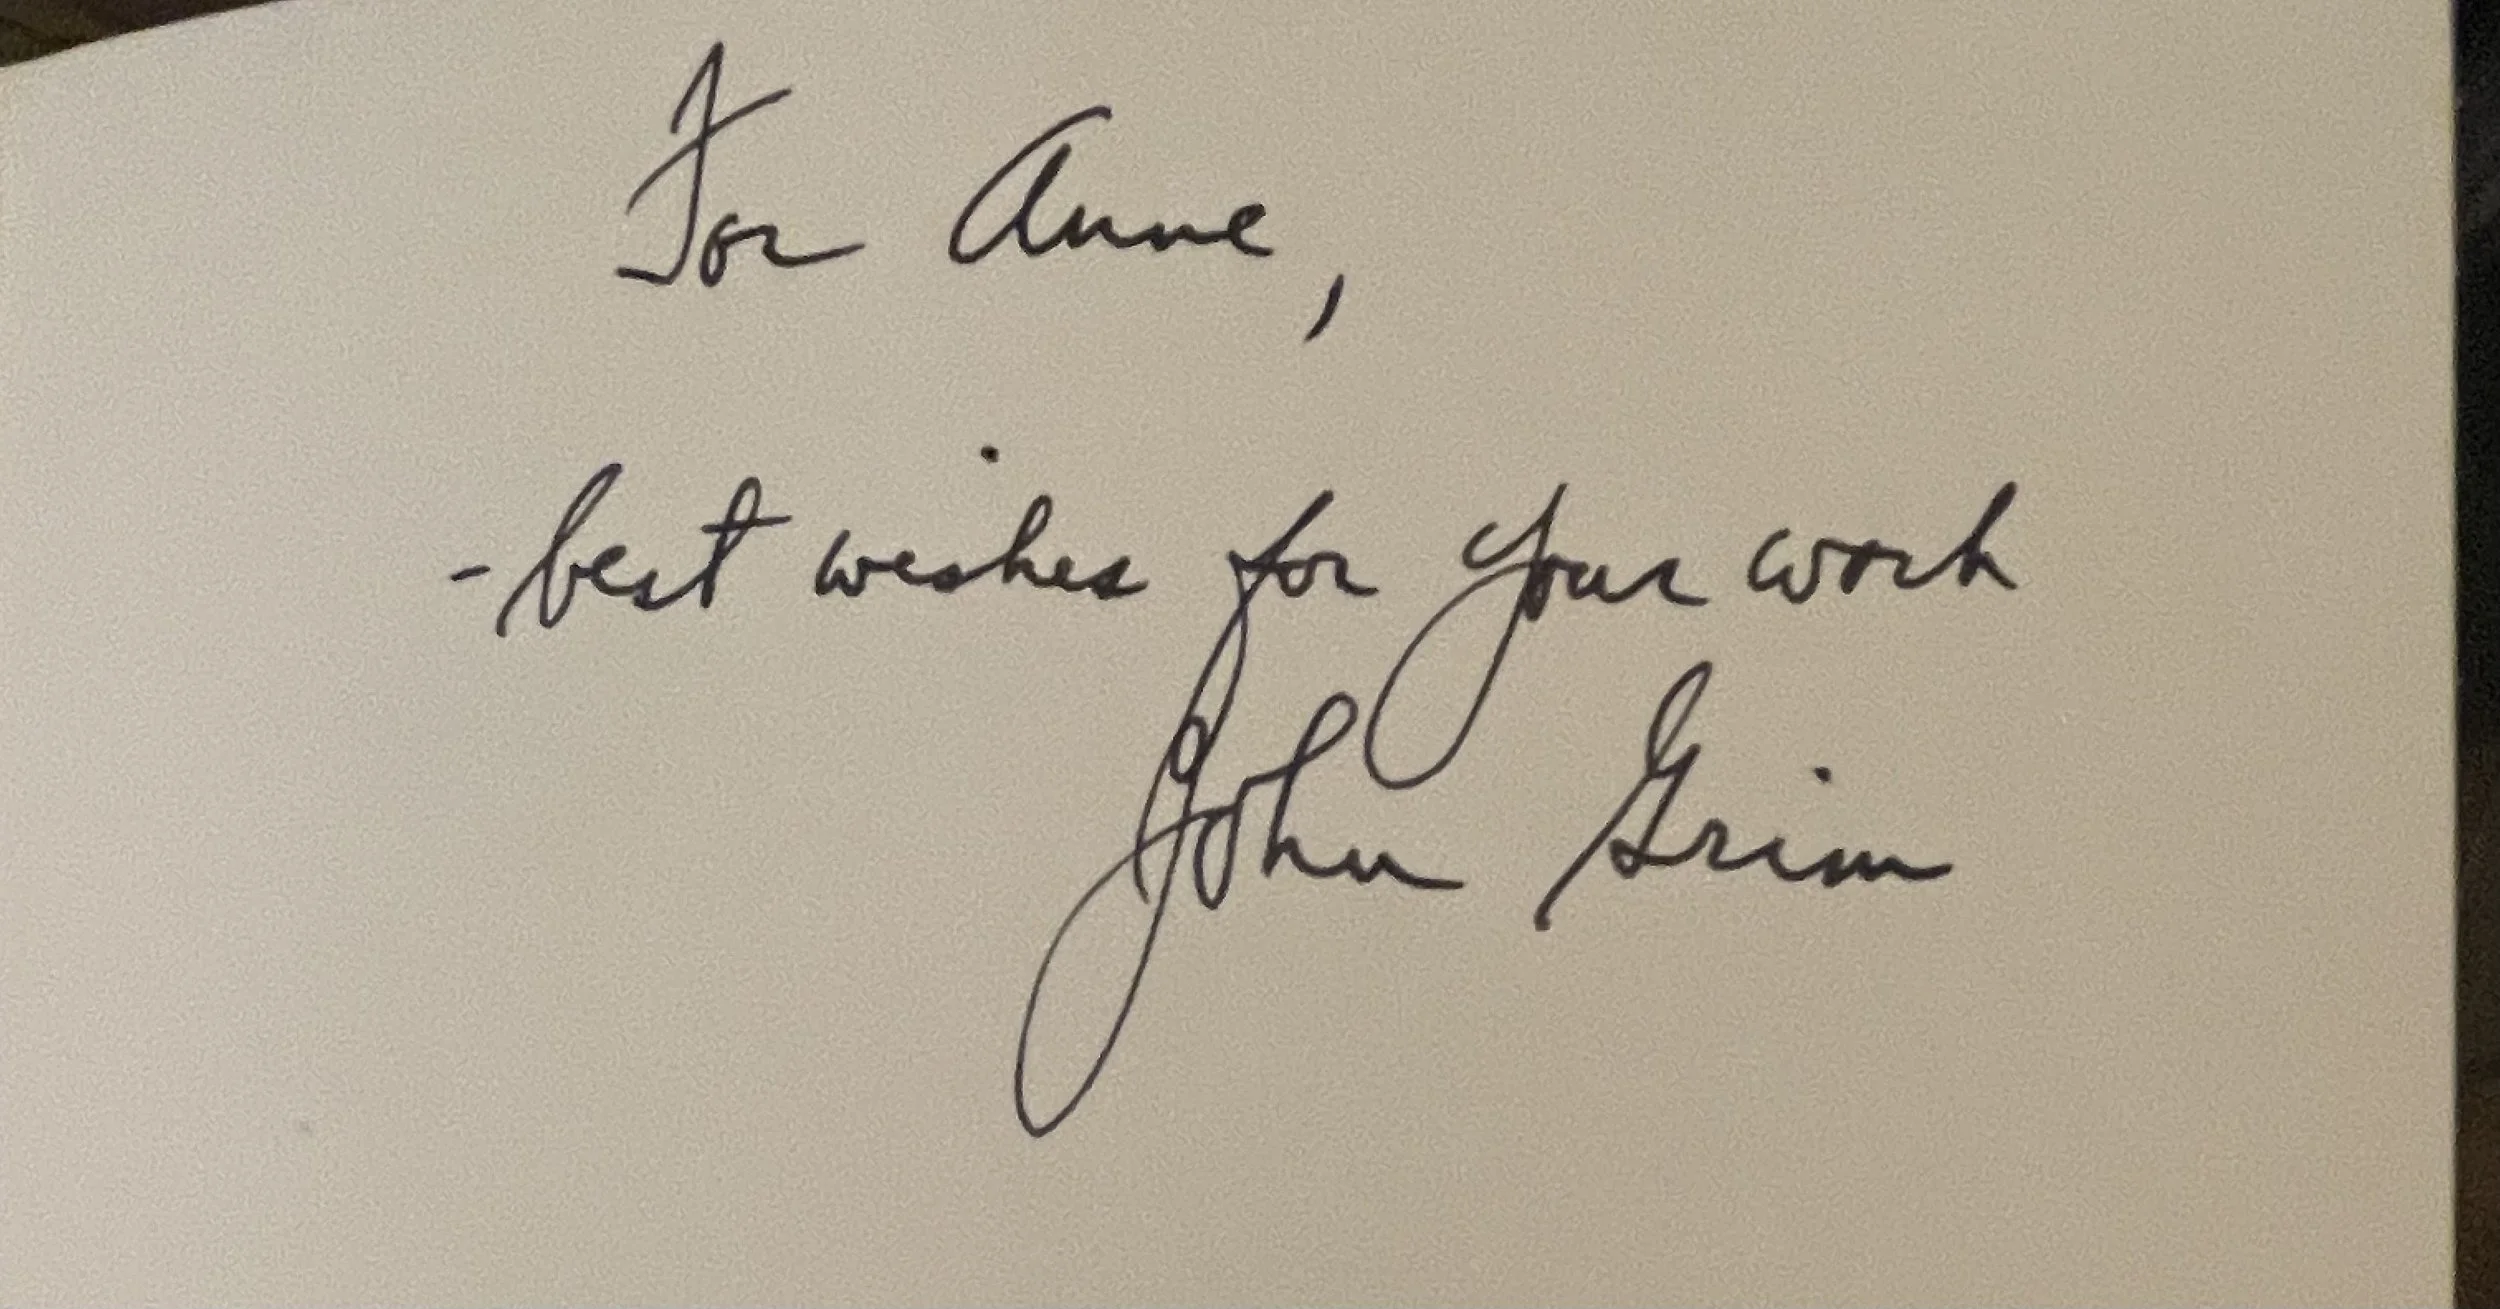 For Anne,
- best wishes for your work
John Grim